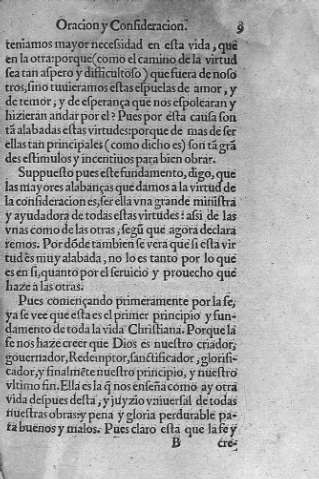 Oracion y Consideracion. 9
teniamos mayor necessidad en esta vida, que
en la otra: porque (como el camino de la virtud
sea tan aspero y difficultoso) que fuera de noso
tros, sino tuuieramos estas espuelas de amor, y
de temor, y de esperança que nos espolearan y
hizieran andar por el? Pues por esta causa son
tã alabadas estas virtudes: porque de mas de ser
ellas tan principales (como dicho es) son tã grã
des estimulos y incentiuos para bien obrar.
Suppuesto pues este fundamento, digo, que
las mayores alabanças que damos a la virtud de
la consideracion es, ser ella vna grande ministra
y ayudadora de todas estas virtudes: asi de las
vnas como de las otras, segũ que agora declara
remos. Por dõde tambien se vera que si esta vir
tud es muy alabada, no lo es tanto por lo que
es en si, quanto por el seruicio y prouecho que
haze a las otras.
Pues començando primeramente por la fe,
ya se vee que esta es el primer principio y fun-
damento de toda la vida Christiana. Porque la
fe nos haze creer que Dios es nuestro criador,
gouernador, Redemptor, sanctificador, glorifi-
cador, y finalmẽte nuestro principio, y nuestro
vltimo fin. Ella es la q̃ nos enseña como ay otra
vida despues desta, y juyzio vniuersal de todas
nuestras obras: y pena y gloria perdurable pa-
ra buenos y malos. Pues claro esta que la fe y
B cre-